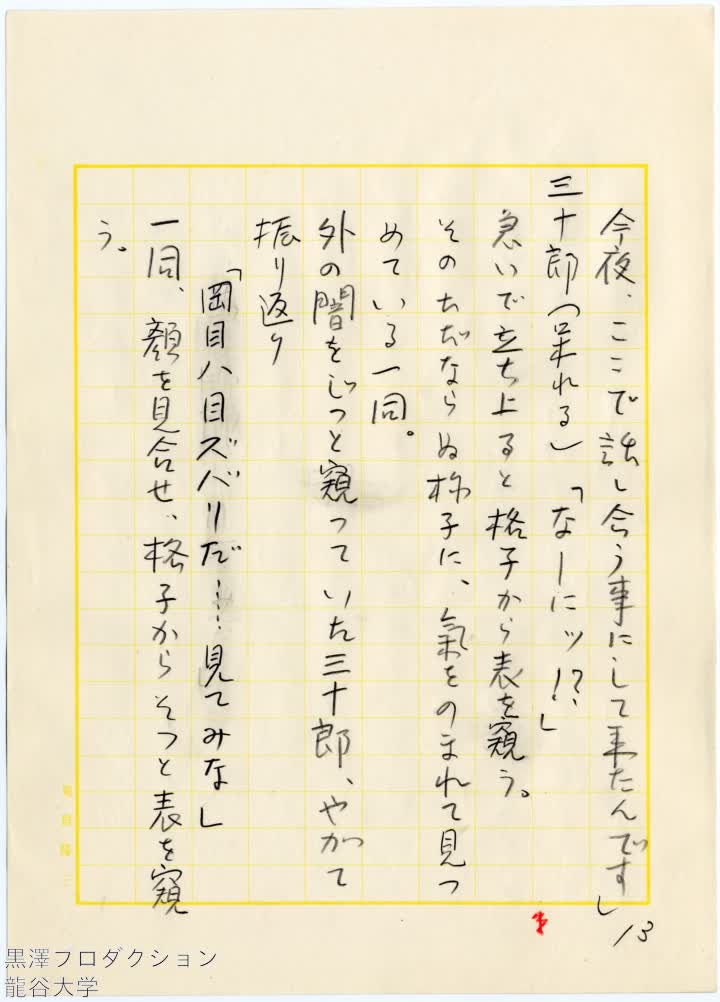 今夜、ここで話し合う事にして来たんです」
三十郎（呆れる）「なーにッ!?」
急いで立ち上ると格子から表を窺う。
そのただならぬ様子に、氣をのまれて見つ
めている一同。
外の闇をじっと窺っていた三十郎、やがて
振り返り
「岡目八目ズバリだ……見てみな」
一同、顔を見合せ、格子からそっと表を窺
う。
13
黒澤プロダクション
龍谷大学